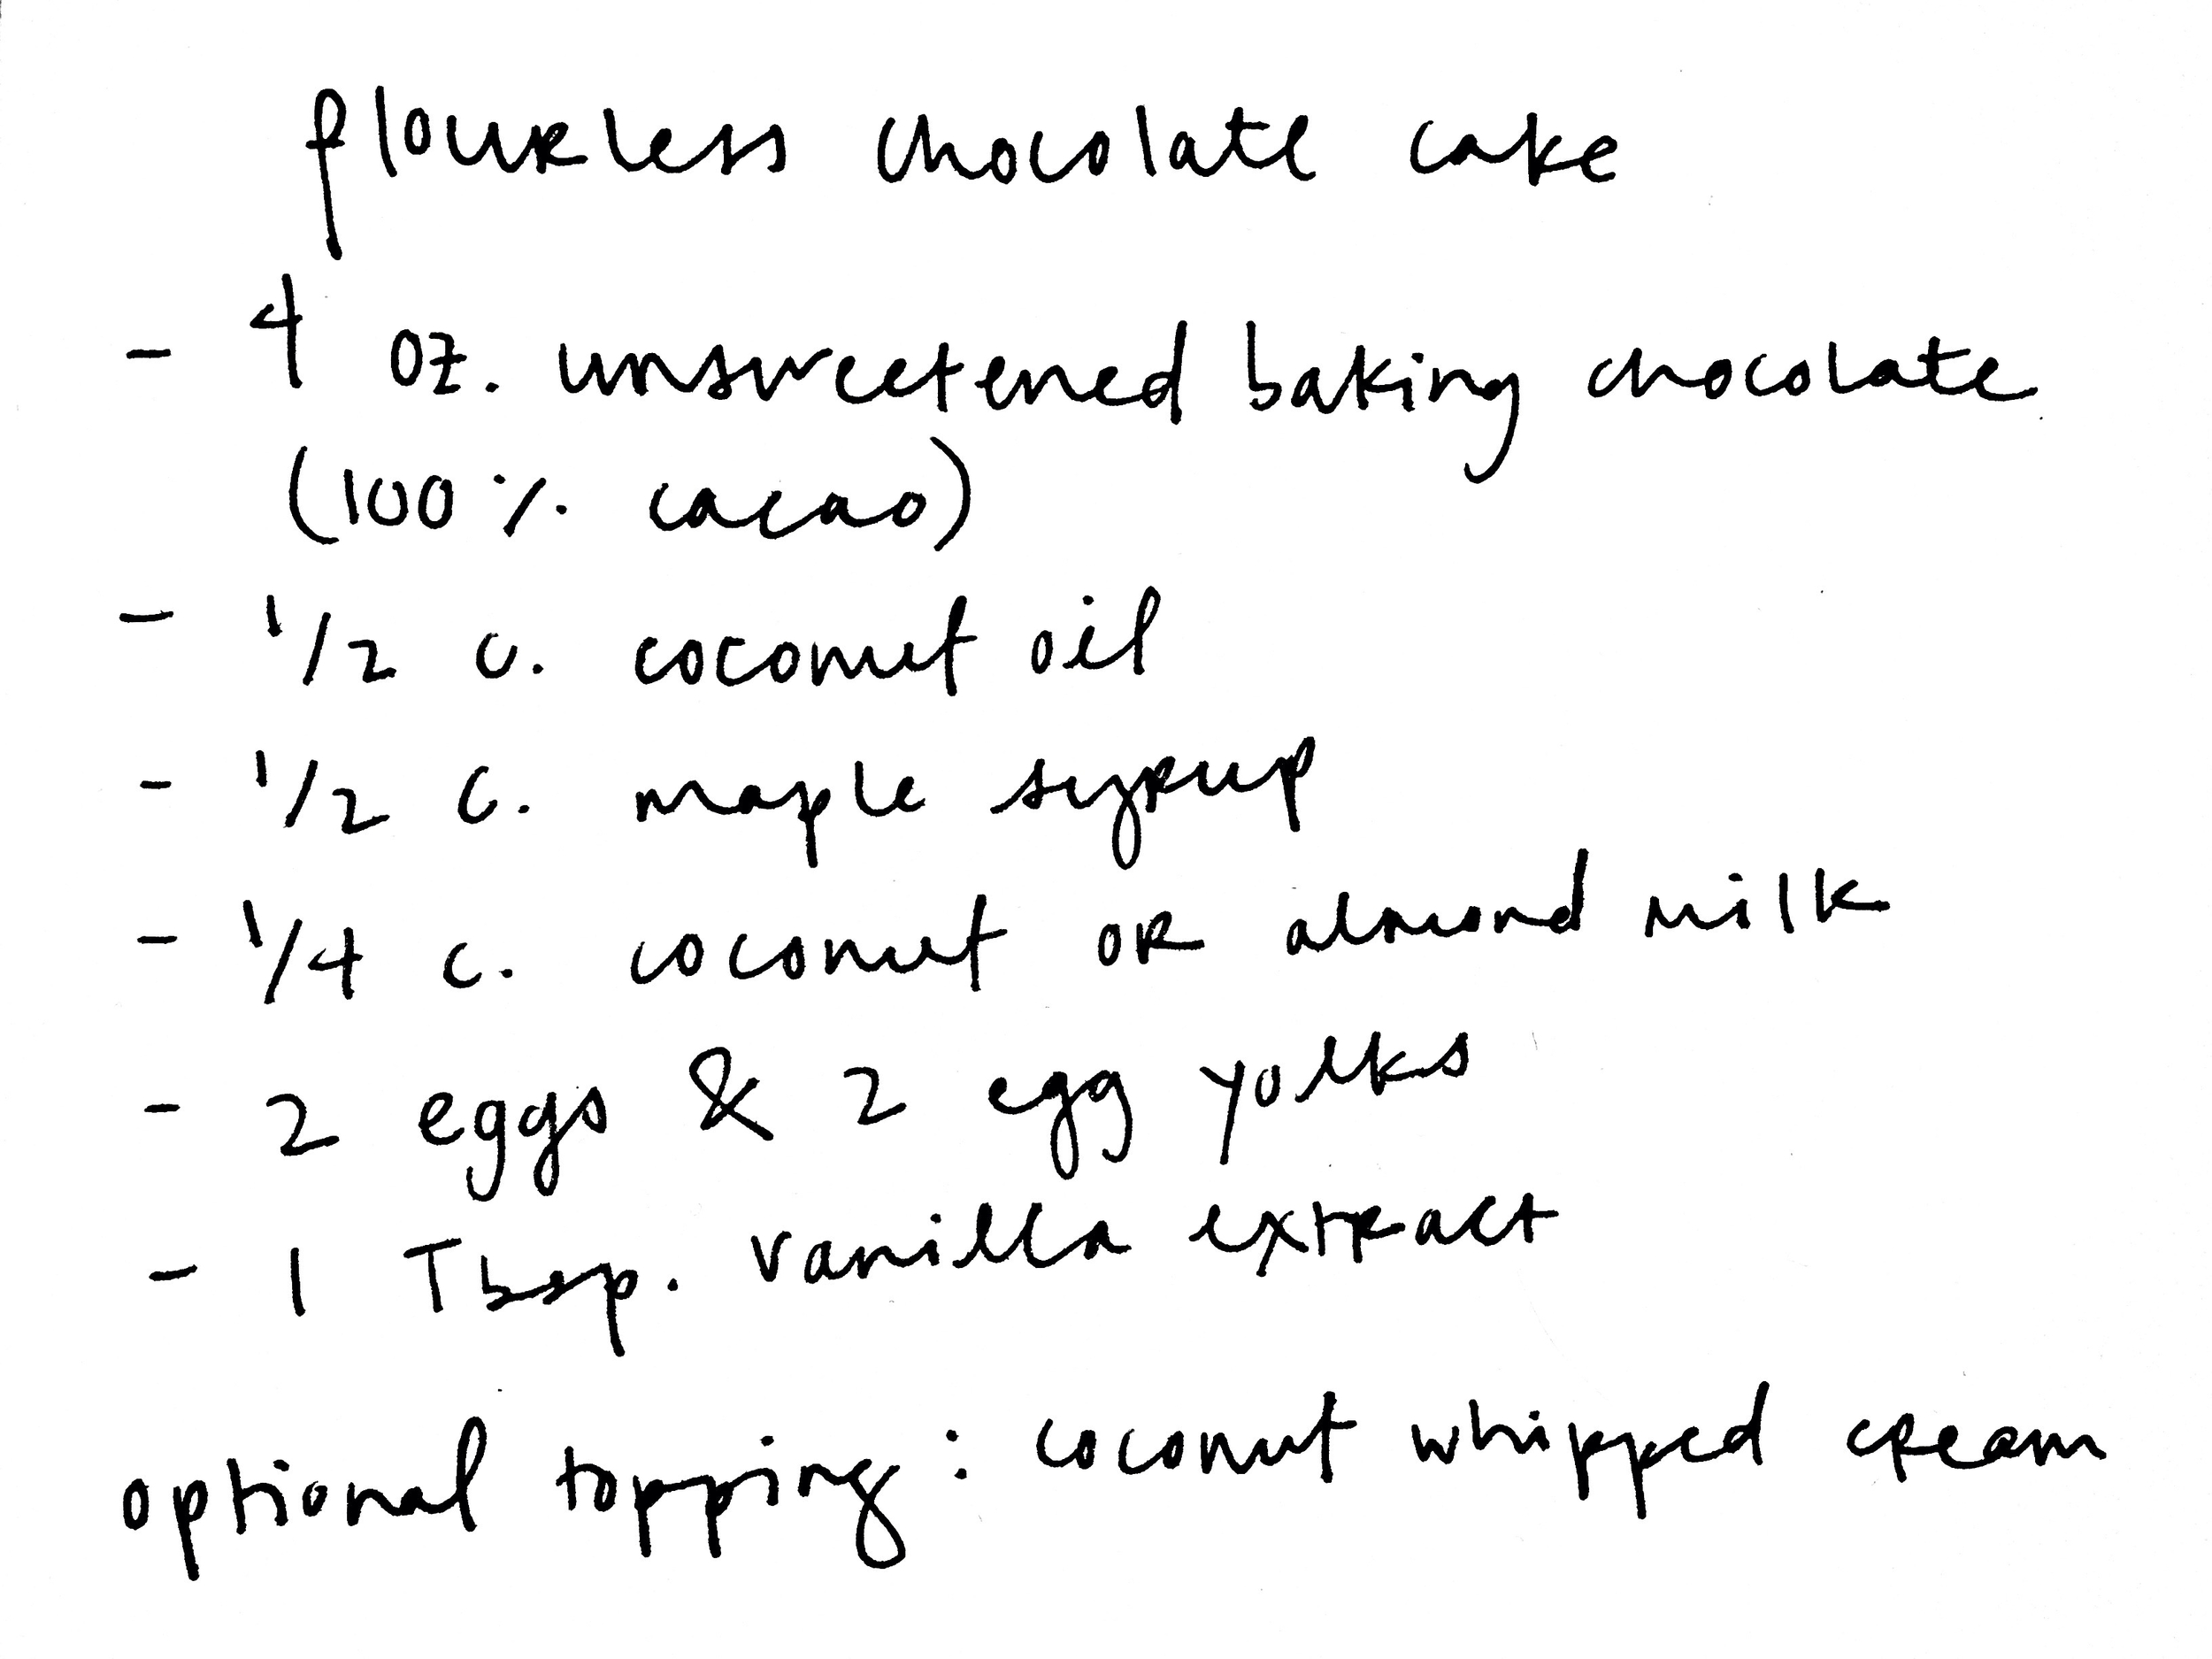 flourless chocolate cake
- 4 oz. unsweetened baking chocolate
(100% cacao)
- 1/2 c. coconut oil
- 1/2 c. maple syrup
- 1/4 c. coconut or almond milk
- 2 eggs & 2 egg yolks
- 1 Tbsp. vanilla extract
optional topping: coconut whipped cream